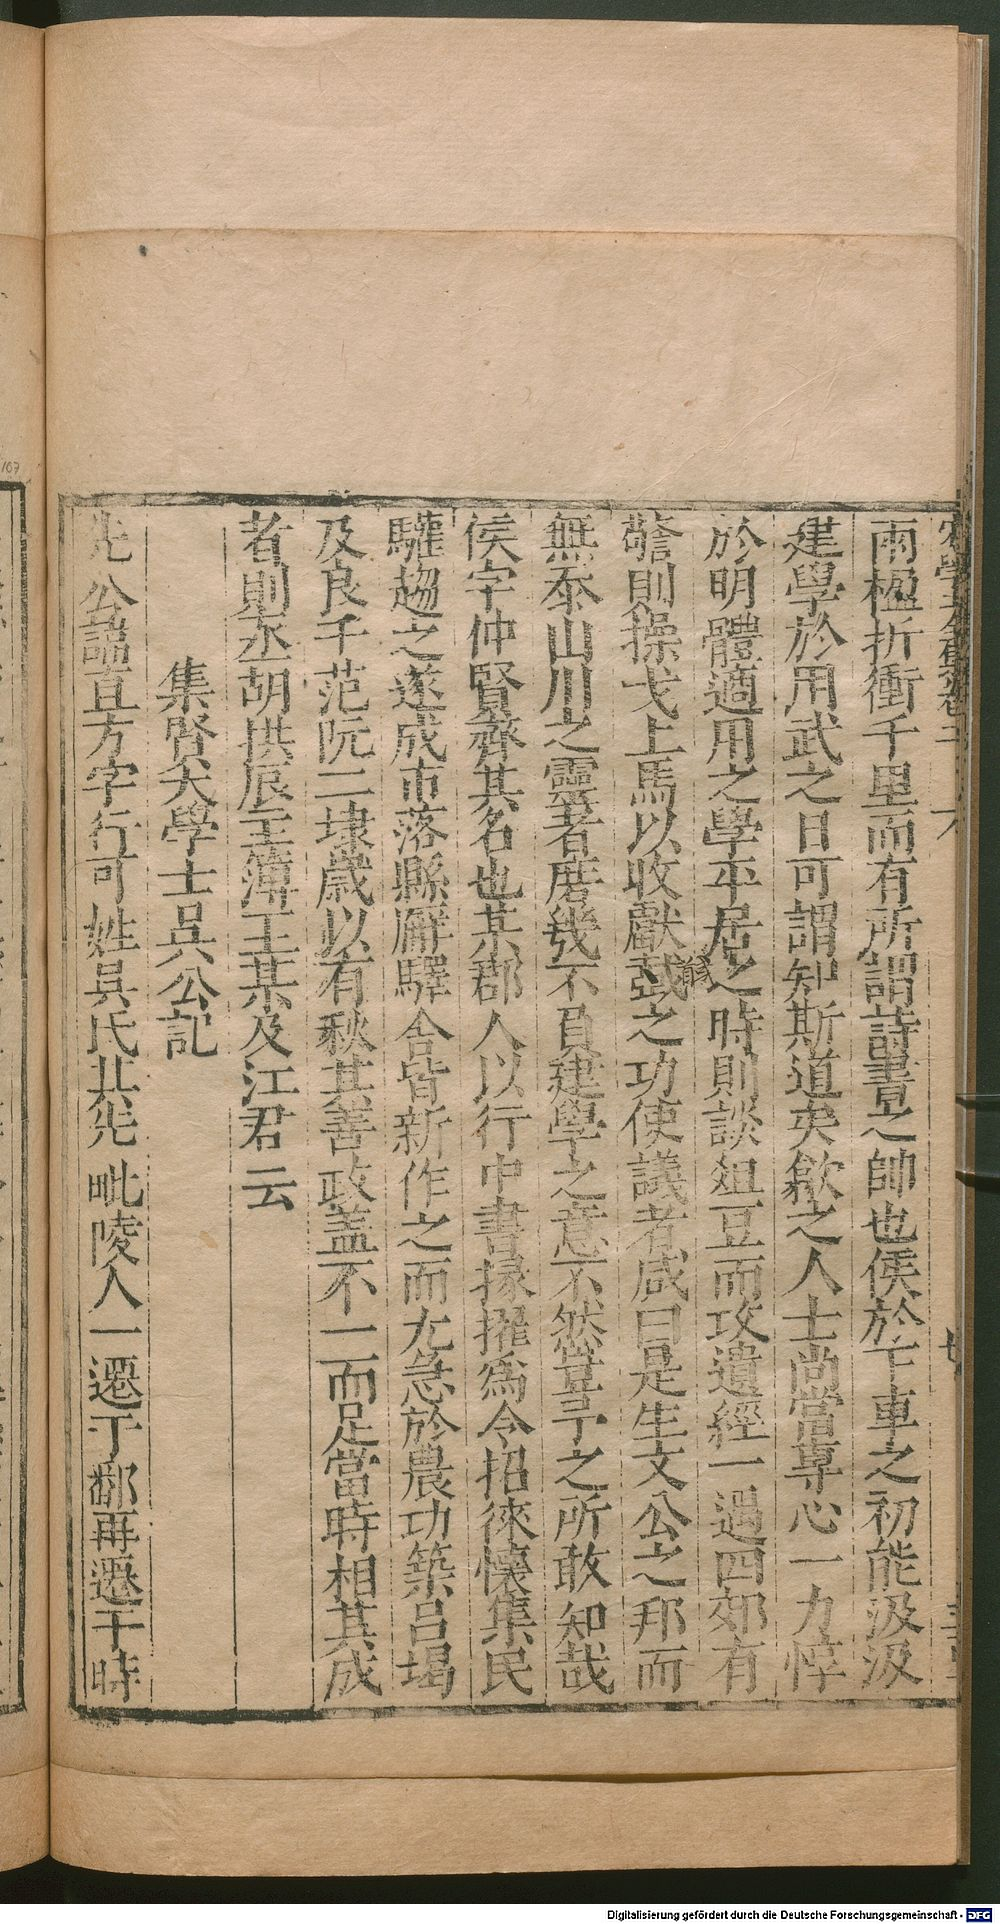 兩楹折衝千里而有所謂詩書之帥也侯於下車之初能汲汲
建學於用武之日可謂知斯道矣歙之人士尚當專心一力悴
於明體適用之學平居之時則談俎豆而攻遺經一遇四郊有
警則操戈上馬以收獻馘之功使議者咸曰是生文公之邦而
無泰山川之靈者庶幾不負建學之意不然豈予之所敢知哉
侯字仲賢齊其名也某郡人以行中書掾擢爲令招徠懷集民
驩趨之遂成市落縣廨驛舍皆新作之而尤急於農功築呂堨
及良干范阮二埭歲以有秋其善政盖不一而足當時相其成
者則丞胡拱辰主簿王某及江君云
集賢大學士吳公記
先公諱直方字行可姓吳氏其先毗陵人一遷于鄱再遷于時
107
Digitalisierung gefördert durch die Deutsche Forschungsgemeinschaft - DFG